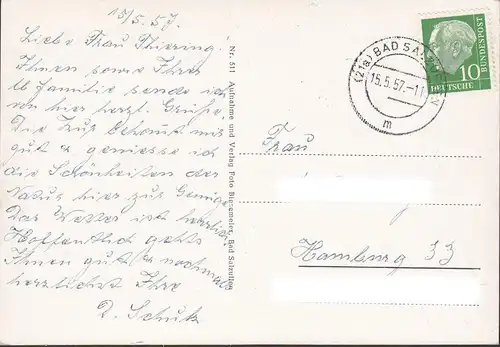 15/5.57.
Liebe Frau Thiering.
Ihnen sowie Ihrer
lb Familie sende ich
von hier herzl. Grüße,
Die Kur bekommt mir
gut & geniesse ich
die Schönheiten der
Natur hier zur Genüge
Das Wetter ist herrlich
Hoffentlich gehts
Ihnen gut & nochmals
herzlichst Ihre
D. Schulz
Nr. 511 Aufnahme und Verlag Foto Biegemeier, Bad Salzuflen
(21a) BAD SALZUFLEN
15.5.57.-11
m
10
DEUTSCHE
BUNDESPOST
Frau
Hamburg 33